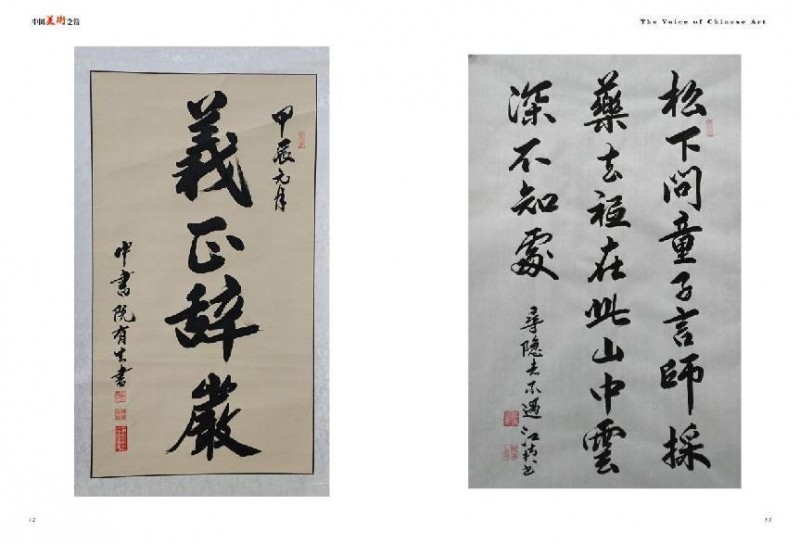 中国美術之音
The Voice of Chinese Art
甲辰元月
義正辭嚴
中書院有生書
松下問童子言師採
藥去祗在此山中雲
深不知處
尋隐者不遇 江
12
13